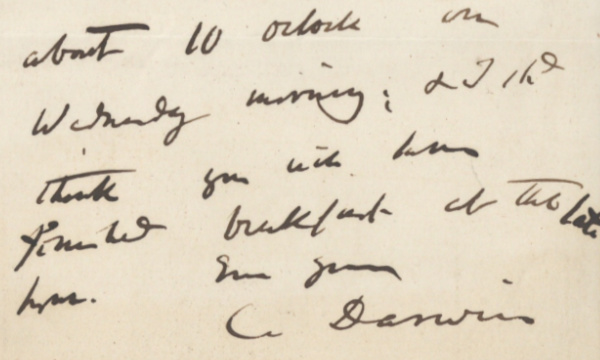 about 10 oclock on
Wednesday morning; & I shd
think you will have
finished breakfast at that late
hour.  Ever yours
C. Darwin